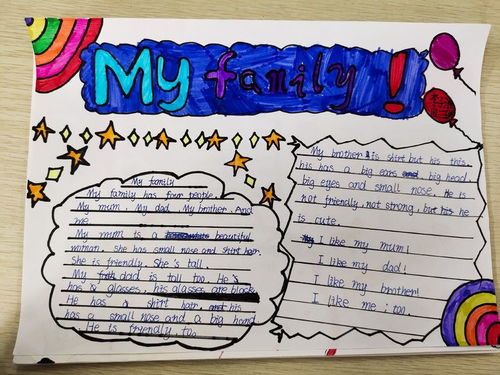 My family!
My family
My family has four people.
My mum. My dad. My brother. And
me
My mum is a beautiful
woman. She has small nose and shirt hair.
She is friendly. She's tall.
My dad is tall too. He's
has a glasses, his glasses are black.
He has a shirt hair. his
has a small nose and a big hand
He is friendly to.
My brother is shirt but his this.
his has a big ears big head,
big eyes and small nose. He is
not friendly, not strong, but he
is cute.
I like my mum!
I like my dad!
I like my brother!
I like me; too.